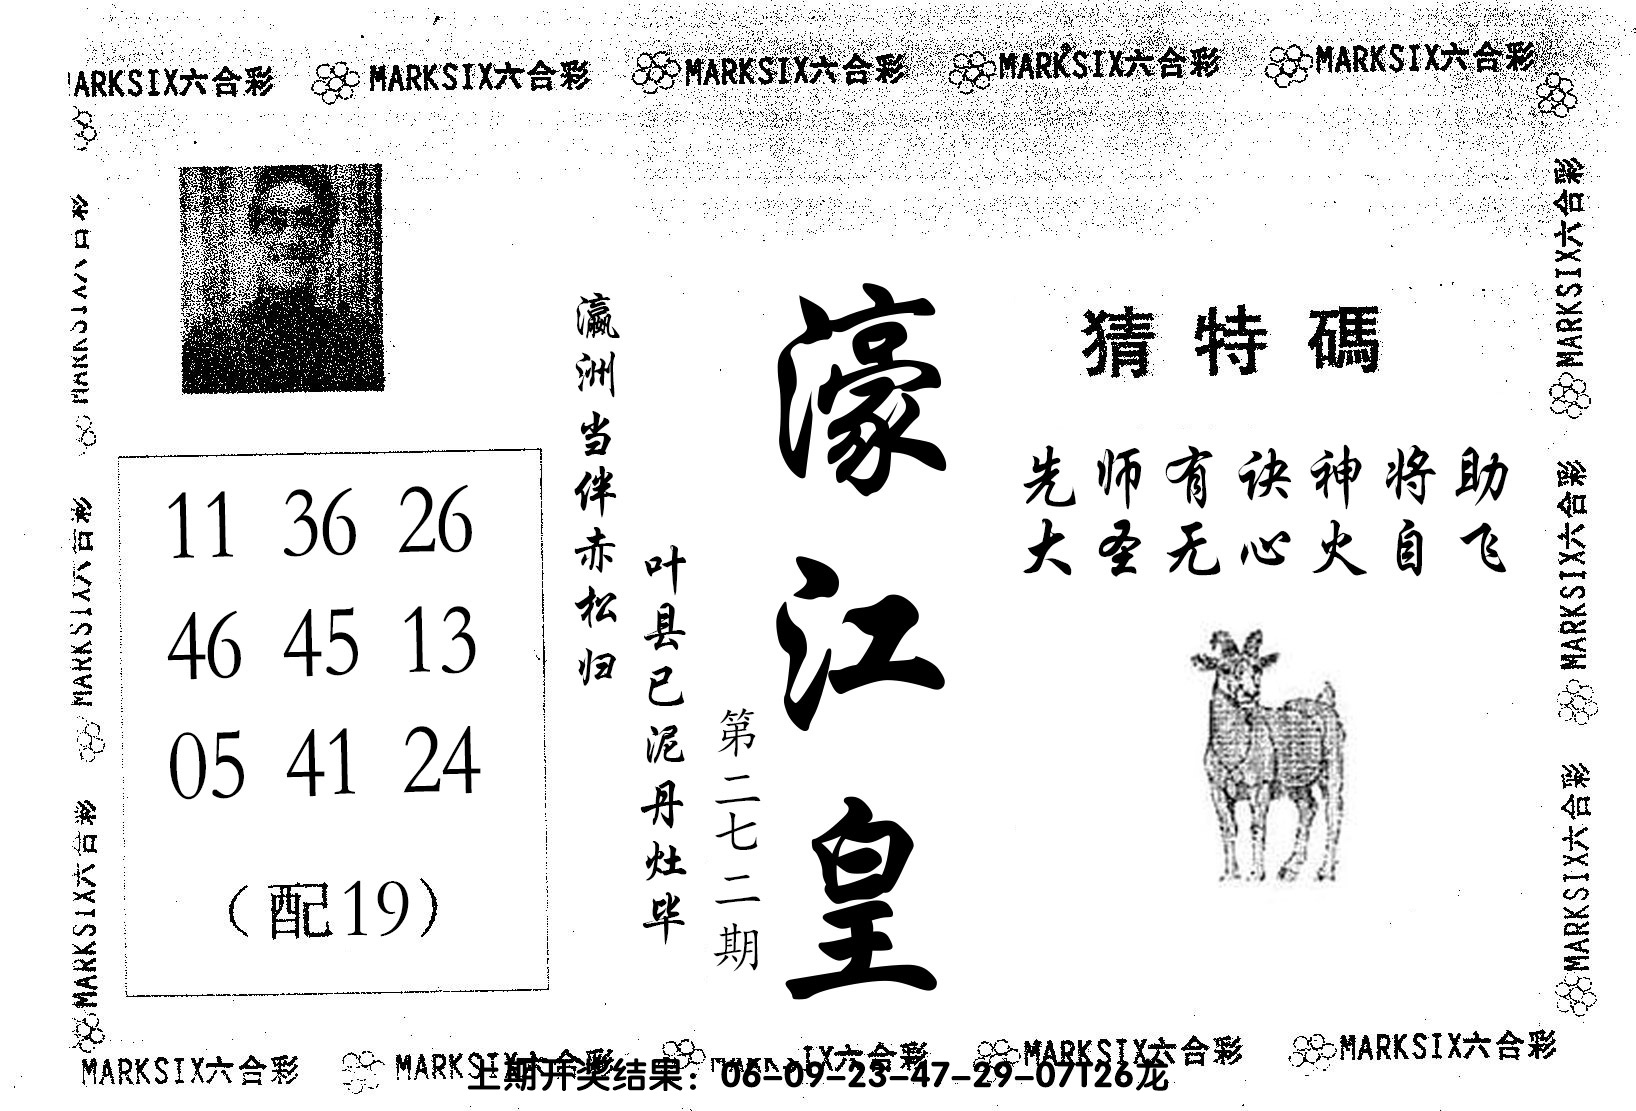 MARKSIX六合彩 MARKSIX六合彩 MARKSIX六合彩 MARKSIX六合彩 MARKSIX六合彩
MARKSIX六合彩
MARKSIX六合彩
MARKSIX六合彩
11 36 26
46 45 13
05 41 24
（配19）
瀛洲当伴赤松归
叶县已泥丹灶毕
第二七二期
濠江皇
猜特碼
先师有诀神将助
大圣无心火自飞
MARKSIX六合彩
MARKSIX六合彩
MARKSIX六合彩
MARKSIX六合彩 MARKSIX六合彩 MARKSIX六合彩 MARKSIX六合彩 MARKSIX六合彩
上期开奖结果：06-09-23-47-29-07T26龙